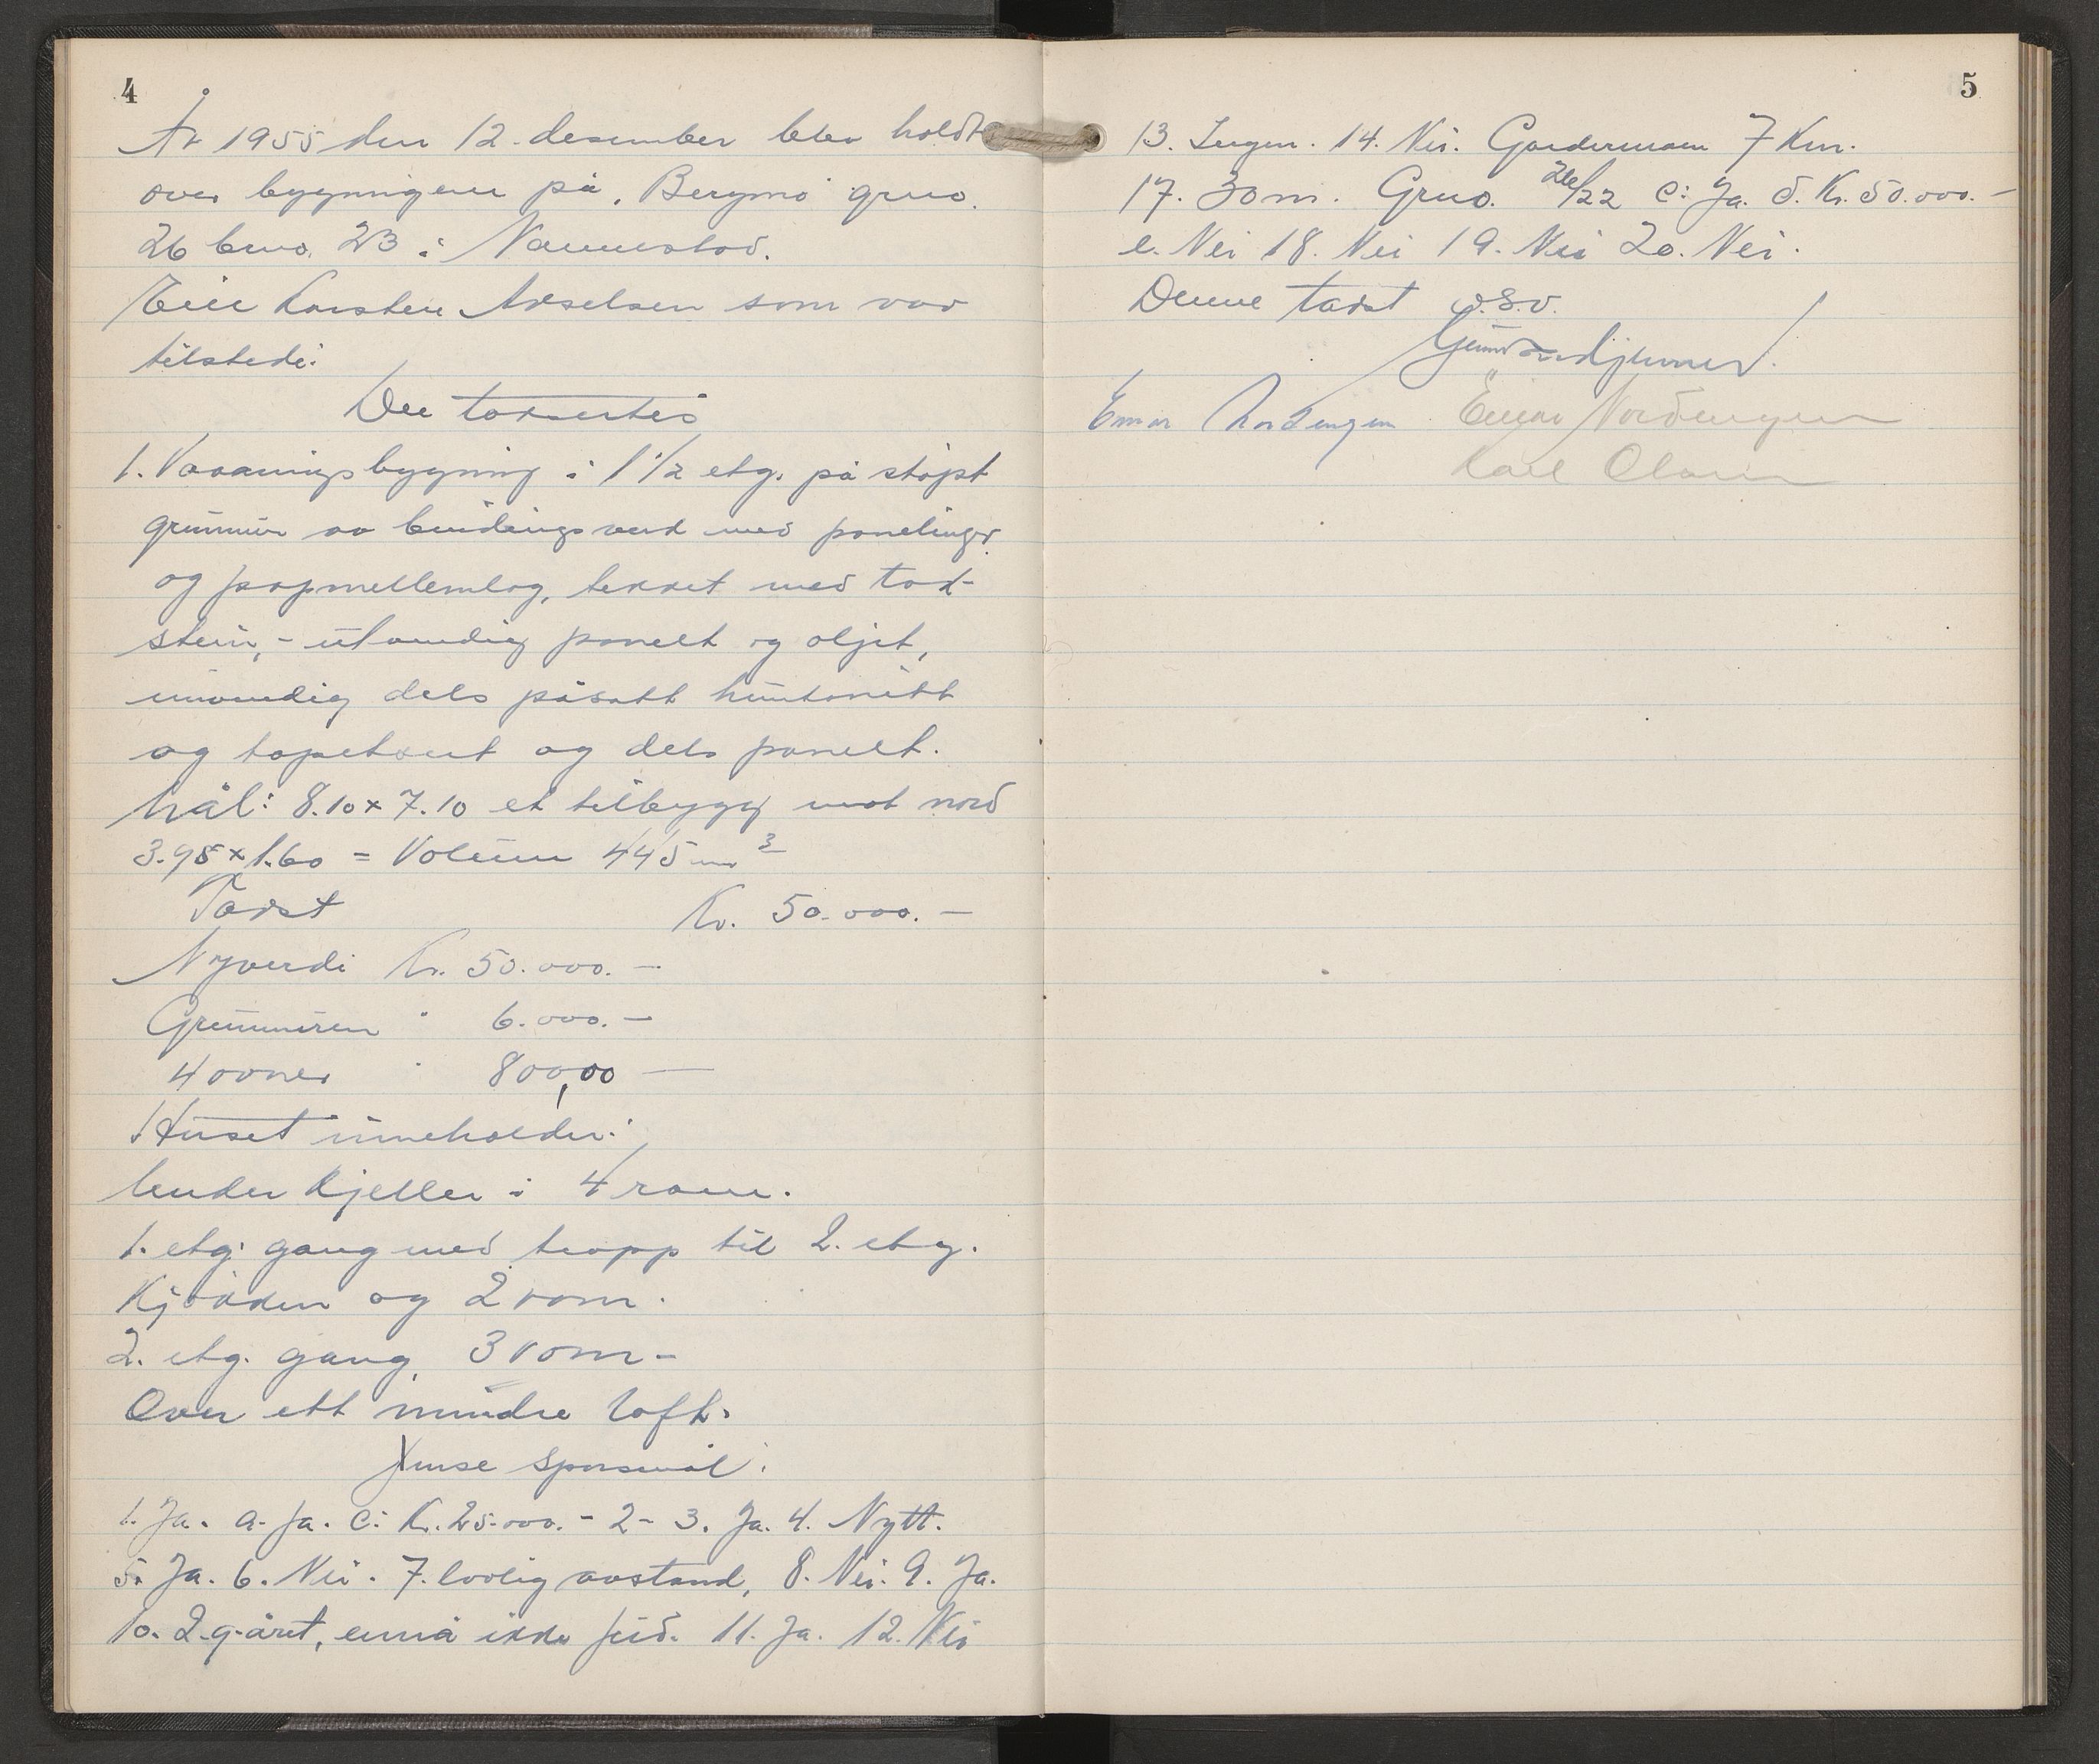 4
År 1955 den 12. desember blev holdt
over bygningen på "Bergmo" gno.
26 bno. 23 i Nannestad.
Eier Karsten Akselsen som var
tilstede:
Det taksertes
1. Vaaningsbygning i 1 1/2 etg. på støpt
grunnmur av bindingsverk med panelinger
og papmellemlag, tekket med tak-
stein, - utvendig panelt og oljet,
innvendig dels påsatt huntonitt
og tapetsert og dels panelt.
Mål: 8.10 x 7.10 et tilbygg mot nord
3.98 x 1.60 = Volum 445 m3
Takst Kr. 50.000.—
Nyverdi Kr. 50.000.—
Grunnmuren " 6.000.—
4 ovner " 800,00 —
Huset inneholder:
Under kjeller i 4 rom.
1. etg. gang med trapp til 2. etg.
Kjøkken og 2 rom.
2. etg. gang, 3 rom -
Over ett mindre loft.
Visse spørsmål:
1. Ja. a. ja. c: Kr. 25.000.- 2- 3. Ja. 4. Nytt.
5. Ja. 6. Nei. 7. lovlig avstand, 8. Nei. 9. Ja.
10. 2.g. året, ennå ikke feid. 11. Ja. 12. Nei
5
13. Ingen. 14. Nei. Gardermoen 7 Km.
17. 30 m. Gno. 26/22 c: Ja. d. Kr. 50.000.—
e. Nei 18. Nei 19. Nei 20. Nei.
Denne takst
Einar Nordengen Einar Nordengen
Karl Olsen